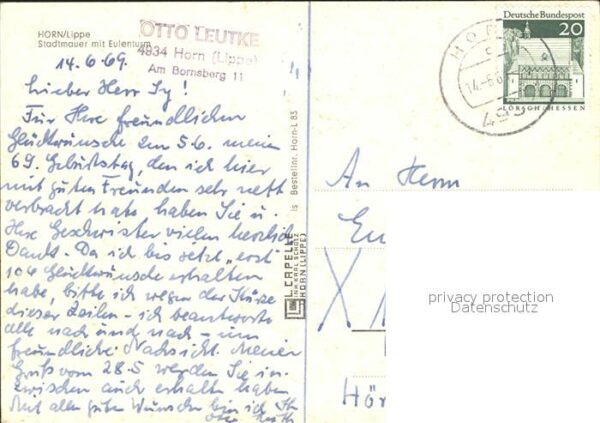 HORN/Lippe
Stadtmauer mit Eulenturm
OTTO LEUTKE
4934 Horn (Lippe)
Am Bornsberg 11
Deutsche Bundespost
20
LORSCH/HESSEN
HO
14.-6.6
493
14.6.69.
Lieber Herr Sy!
Für Ihre freundlichen
Glückwünsche zum 5.6. meinem
69. Geburtstag, den ich hier
mit guten Freunden sehr nett
verbracht habe haben Sie u.
Ihre Geschwister vielen herzlich
Dank. Da ich bis jetzt "erst"
104 Glückwünsche erhalten
habe, bitte ich wegen der Kürze
dieser Zeilen - ich beantworte
alle nach und nach - um
freundliche Nachsicht. Meinen
Gruß vom 28.5 werden Sie in-
zwischen auch erhalten haben
Mit allen guten Wünschen bin ich Ihr
Otto
is Bestellnr. Horn-L 85
L. CAPELLE
INH. KARL SCHOLZ
HORN (LIPPE)
An Herrn
Eu
Hör
privacy protection
Datenschutz